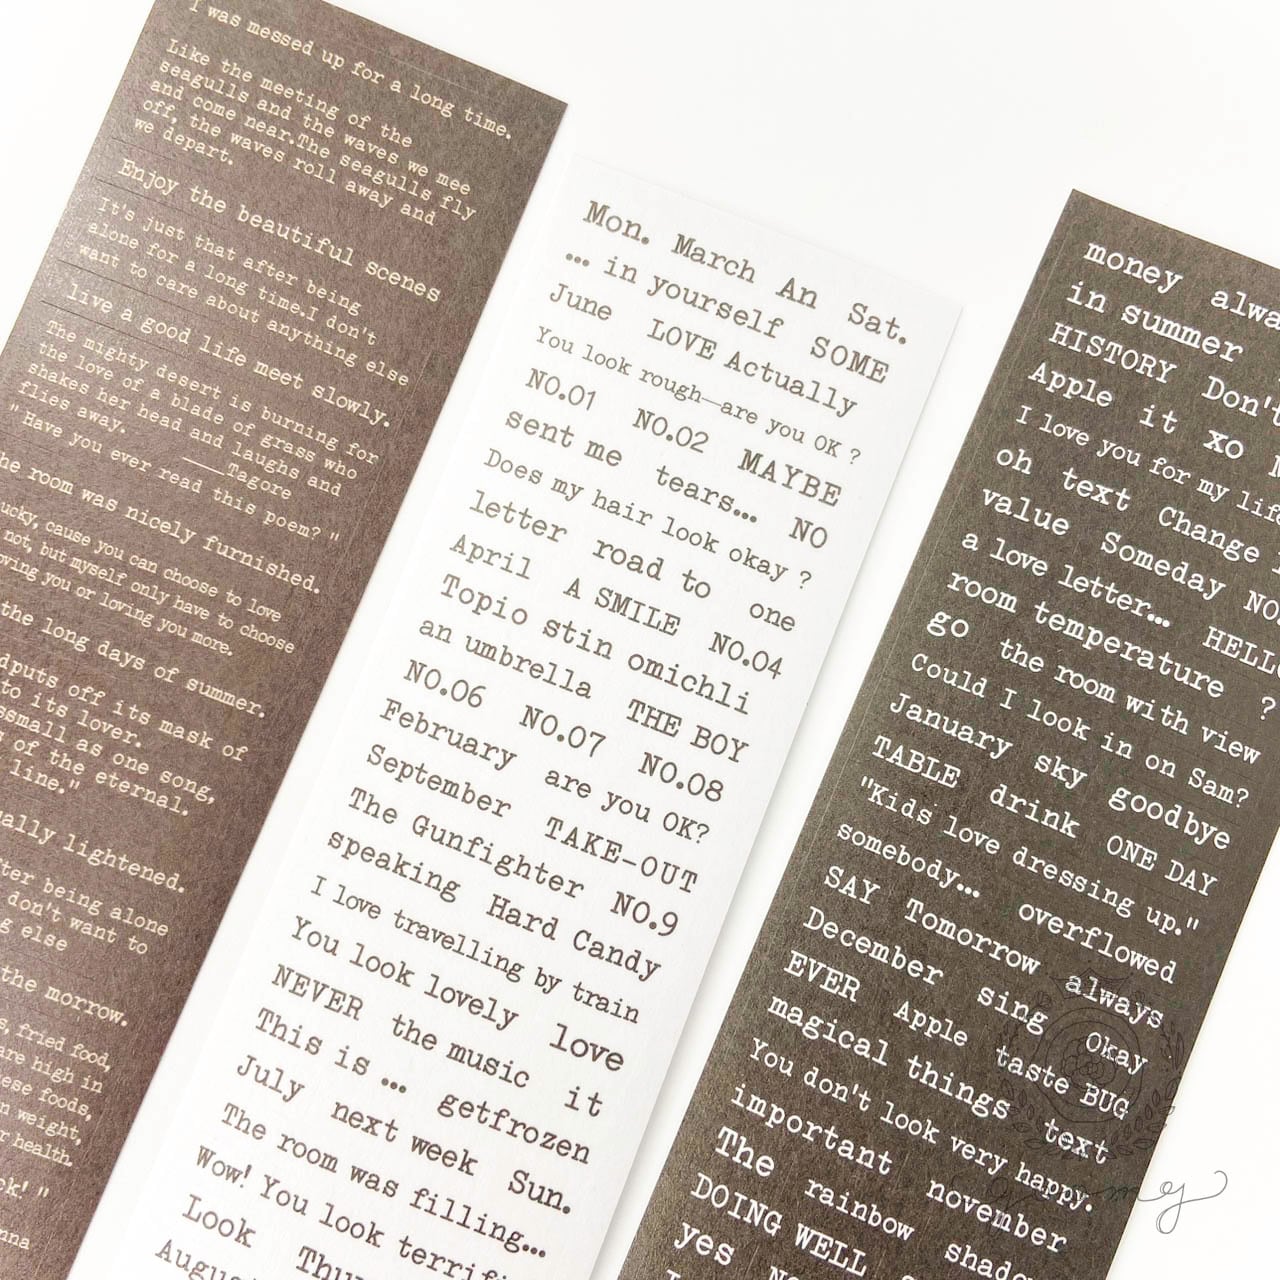 I was messed up for a long time.
Like the meeting of the
seagulls and the waves we mee
and come near.The seagulls fly
off, the waves roll away and
we depart.
Enjoy the beautiful scenes
It's just that after being
alone for a long time.I don't
want to care about anything else
live a good life meet slowly.
The mighty desert is burning for
the love of a blade of grass who
shakes her head and laughs and
flies away. ——Tagore
"Have you ever read this poem?"
he room was nicely furnished.
ucky, cause you can choose to love
not, but myself only have to choose
oving you or loving you more.
the long days of summer.
dputs off its mask of
to its lover.
ssmall as one song,
s of the eternal.
line."
ually lightened.
fter being alone
don't want to
g else
the morrow.
s, fried food,
are high in
nese foods,
n weight,
r health.
ck!"
nna
Mon. March An Sat.
... in yourself SOME
June LOVE Actually
You look rough—are you OK ?
NO.01 NO.02 MAYBE
sent me tears... NO
Does my hair look okay ?
letter road to one
April A SMILE NO.04
Topio stin omichli
an umbrella THE BOY
NO.06 NO.07 NO.08
February are you OK?
September TAKE-OUT
The Gunfighter NO.9
speaking Hard Candy
I love travelling by train
You look lovely love
NEVER the music it
This is ... getfrozen
July next week Sun.
The room was filling...
Wow! You look terrifi
Look Thur
August
money alwa
in summer
HISTORY Don't
Apple it xo
I love you for my life
oh text Change
value Someday NO
a love letter... HELLO
room temperature ?
go the room with view
Could I look in on Sam?
January sky goodbye
TABLE drink ONE DAY
"Kids love dressing up."
somebody... overflowed
SAY Tomorrow always
December sing Okay
EVER Apple taste BUG
magical things text
You don't look very happy.
important november
The rainbow shadow
DOING WELL
yes